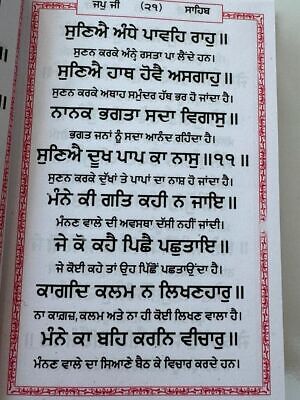 ਜਪੁ ਜੀ (੨੧) ਸਾਹਿਬ
ਸੁਣਿਐ ਅੰਧੇ ਪਾਵਹਿ ਰਾਹੁ॥
ਸੁਣਨ ਕਰਕੇ ਅੰਨ੍ਹੇ ਰਸਤਾ ਪਾ ਲੈਂਦੇ ਹਨ।
ਸੁਣਿਐ ਹਾਥ ਹੋਵੈ ਅਸਗਾਹੁ॥
ਸੁਣਨ ਕਰਕੇ ਅਥਾਹ ਸਮੁੰਦਰ ਹੱਥ ਭਰ ਹੋ ਜਾਂਦਾ ਹੈ।
ਨਾਨਕ ਭਗਤਾ ਸਦਾ ਵਿਗਾਸੁ॥
ਭਗਤ ਜਨਾਂ ਨੂੰ ਸਦਾ ਆਨੰਦ ਰਹਿੰਦਾ ਹੈ।
ਸੁਣਿਐ ਦੂਖ ਪਾਪ ਕਾ ਨਾਸੁ॥੧੧॥
ਸੁਣਨ ਕਰਕੇ ਦੁੱਖਾਂ ਤੇ ਪਾਪਾਂ ਦਾ ਨਾਸ਼ ਹੋ ਜਾਂਦਾ ਹੈ।
ਮੰਨੇ ਕੀ ਗਤਿ ਕਹੀ ਨ ਜਾਇ॥
ਮੰਨਣ ਵਾਲੇ ਦੀ ਅਵਸਥਾ ਦੱਸੀ ਨਹੀਂ ਜਾਂਦੀ।
ਜੇ ਕੋ ਕਹੈ ਪਿਛੈ ਪਛੁਤਾਇ॥
ਜੇ ਕੋਈ ਕਹੇ ਤਾਂ ਉਹ ਪਿੱਛੋਂ ਪਛਤਾਉਂਦਾ ਹੈ।
ਕਾਗਦਿ ਕਲਮ ਨ ਲਿਖਣਹਾਰੁ॥
ਨਾ ਕਾਗਜ਼, ਕਲਮ ਅਤੇ ਨਾ ਹੀ ਕੋਈ ਲਿਖਣ ਵਾਲਾ ਹੈ।
ਮੰਨੇ ਕਾ ਬਹਿ ਕਰਨਿ ਵੀਚਾਰੁ॥
ਮੰਨਣ ਵਾਲੇ ਦਾ ਸਿਆਣੇ ਬੈਠ ਕੇ ਵਿਚਾਰ ਕਰਦੇ ਹਨ।